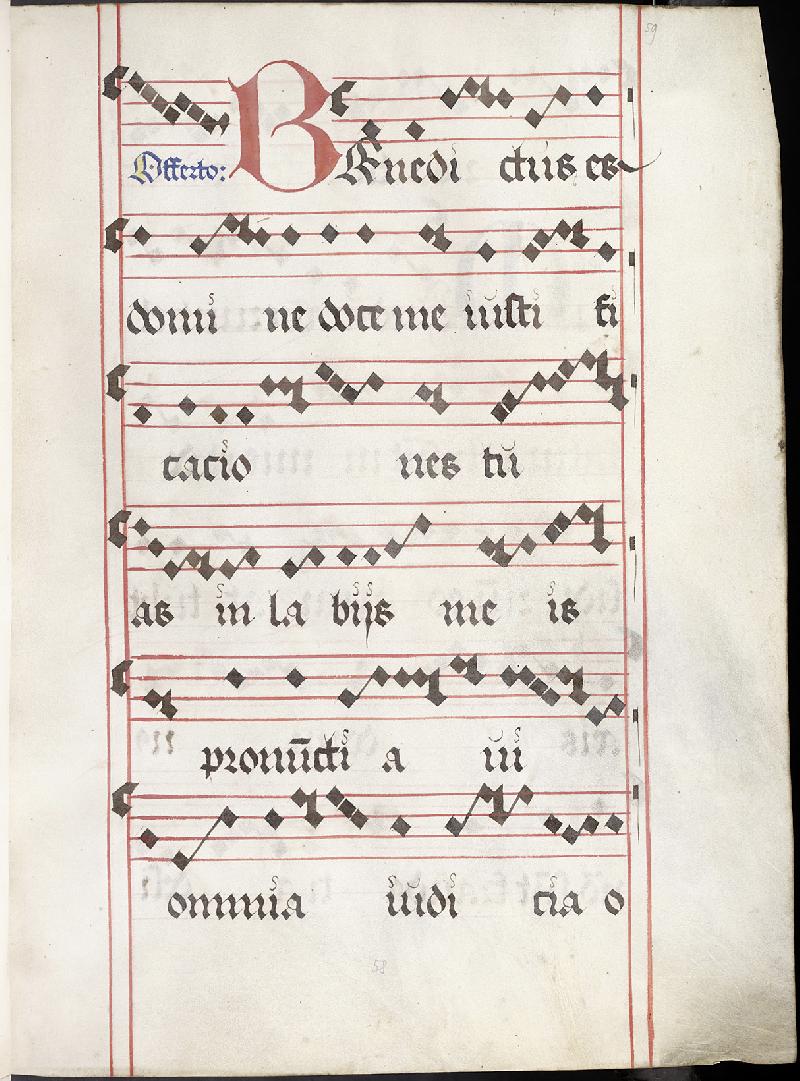 59
Offerto: BEnedi ctus es
domi ne doce me iusti fi
cacio nes tu
as in la bijs me is
pronūcti a ui
omnia iudi cia o
58